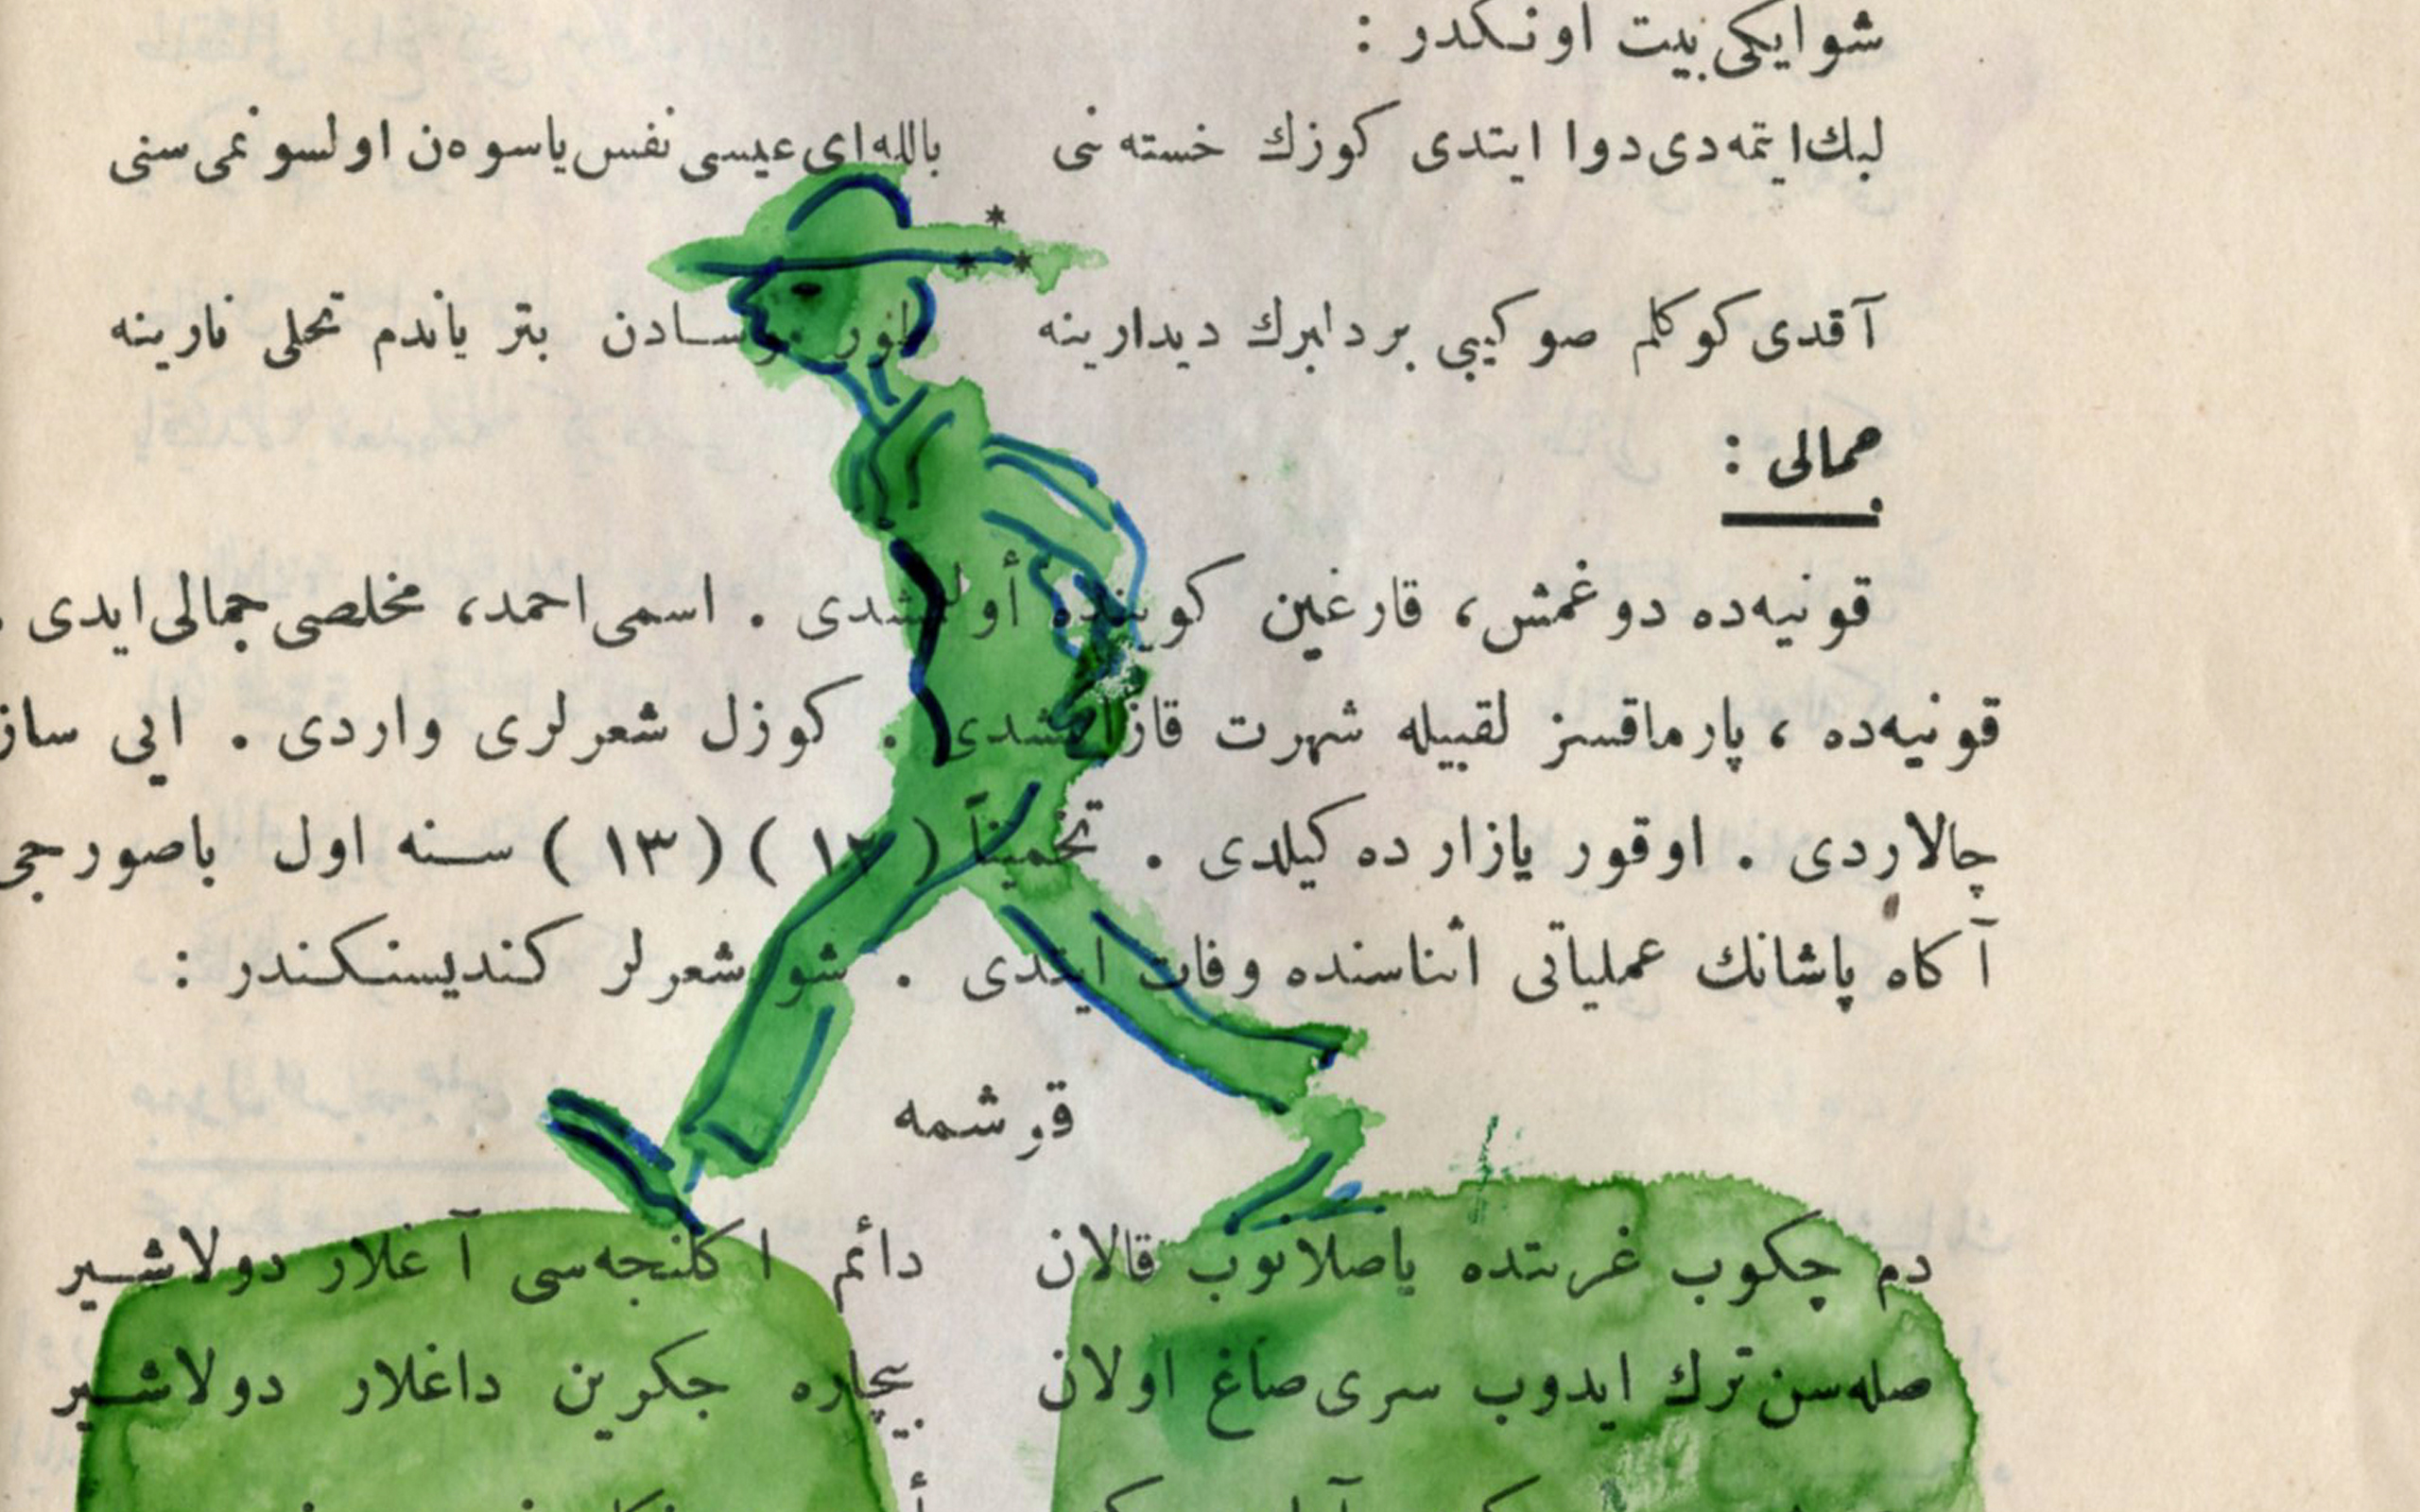 شو ایکی بیت اونکدر :
لبك ایتمەدی دوا ایتدی کوزك خستەنی باللە ای عیسی نفس یا سوەن اولسونمی سنی
***
آقدی کوکلم صو کیبی بر دلبرك دیدارینە طور موسادن بتر یاندم تجلی نارینە
جمالی :
قونیەدە دوغمش، قارغین کویندە أولمشدی . اسمی احمد، مخلصی جمالی ایدی .
قونیەدە ، پارماقسز لقبیلە شهرت قازانمشدی . کوزل شعرلری واردی . ایی ساز
چالاردی . اوقور یازار دەکیلدی . تخمیناً (١٢) (١٣) سنە اول باصورجی
آکاە پاشانك عملیاتی اثناسندە وفات ایتدی . شو شعرلر کندیسنکندر :
قوشمە
دم چکوب غربتدە یاصلانوب قالان دائم اکلنجەسی آغلار دولاشیر
صلەسن ترك ایدوب سری صاغ اولان بیچارە جکرین داغلار دولاشیر